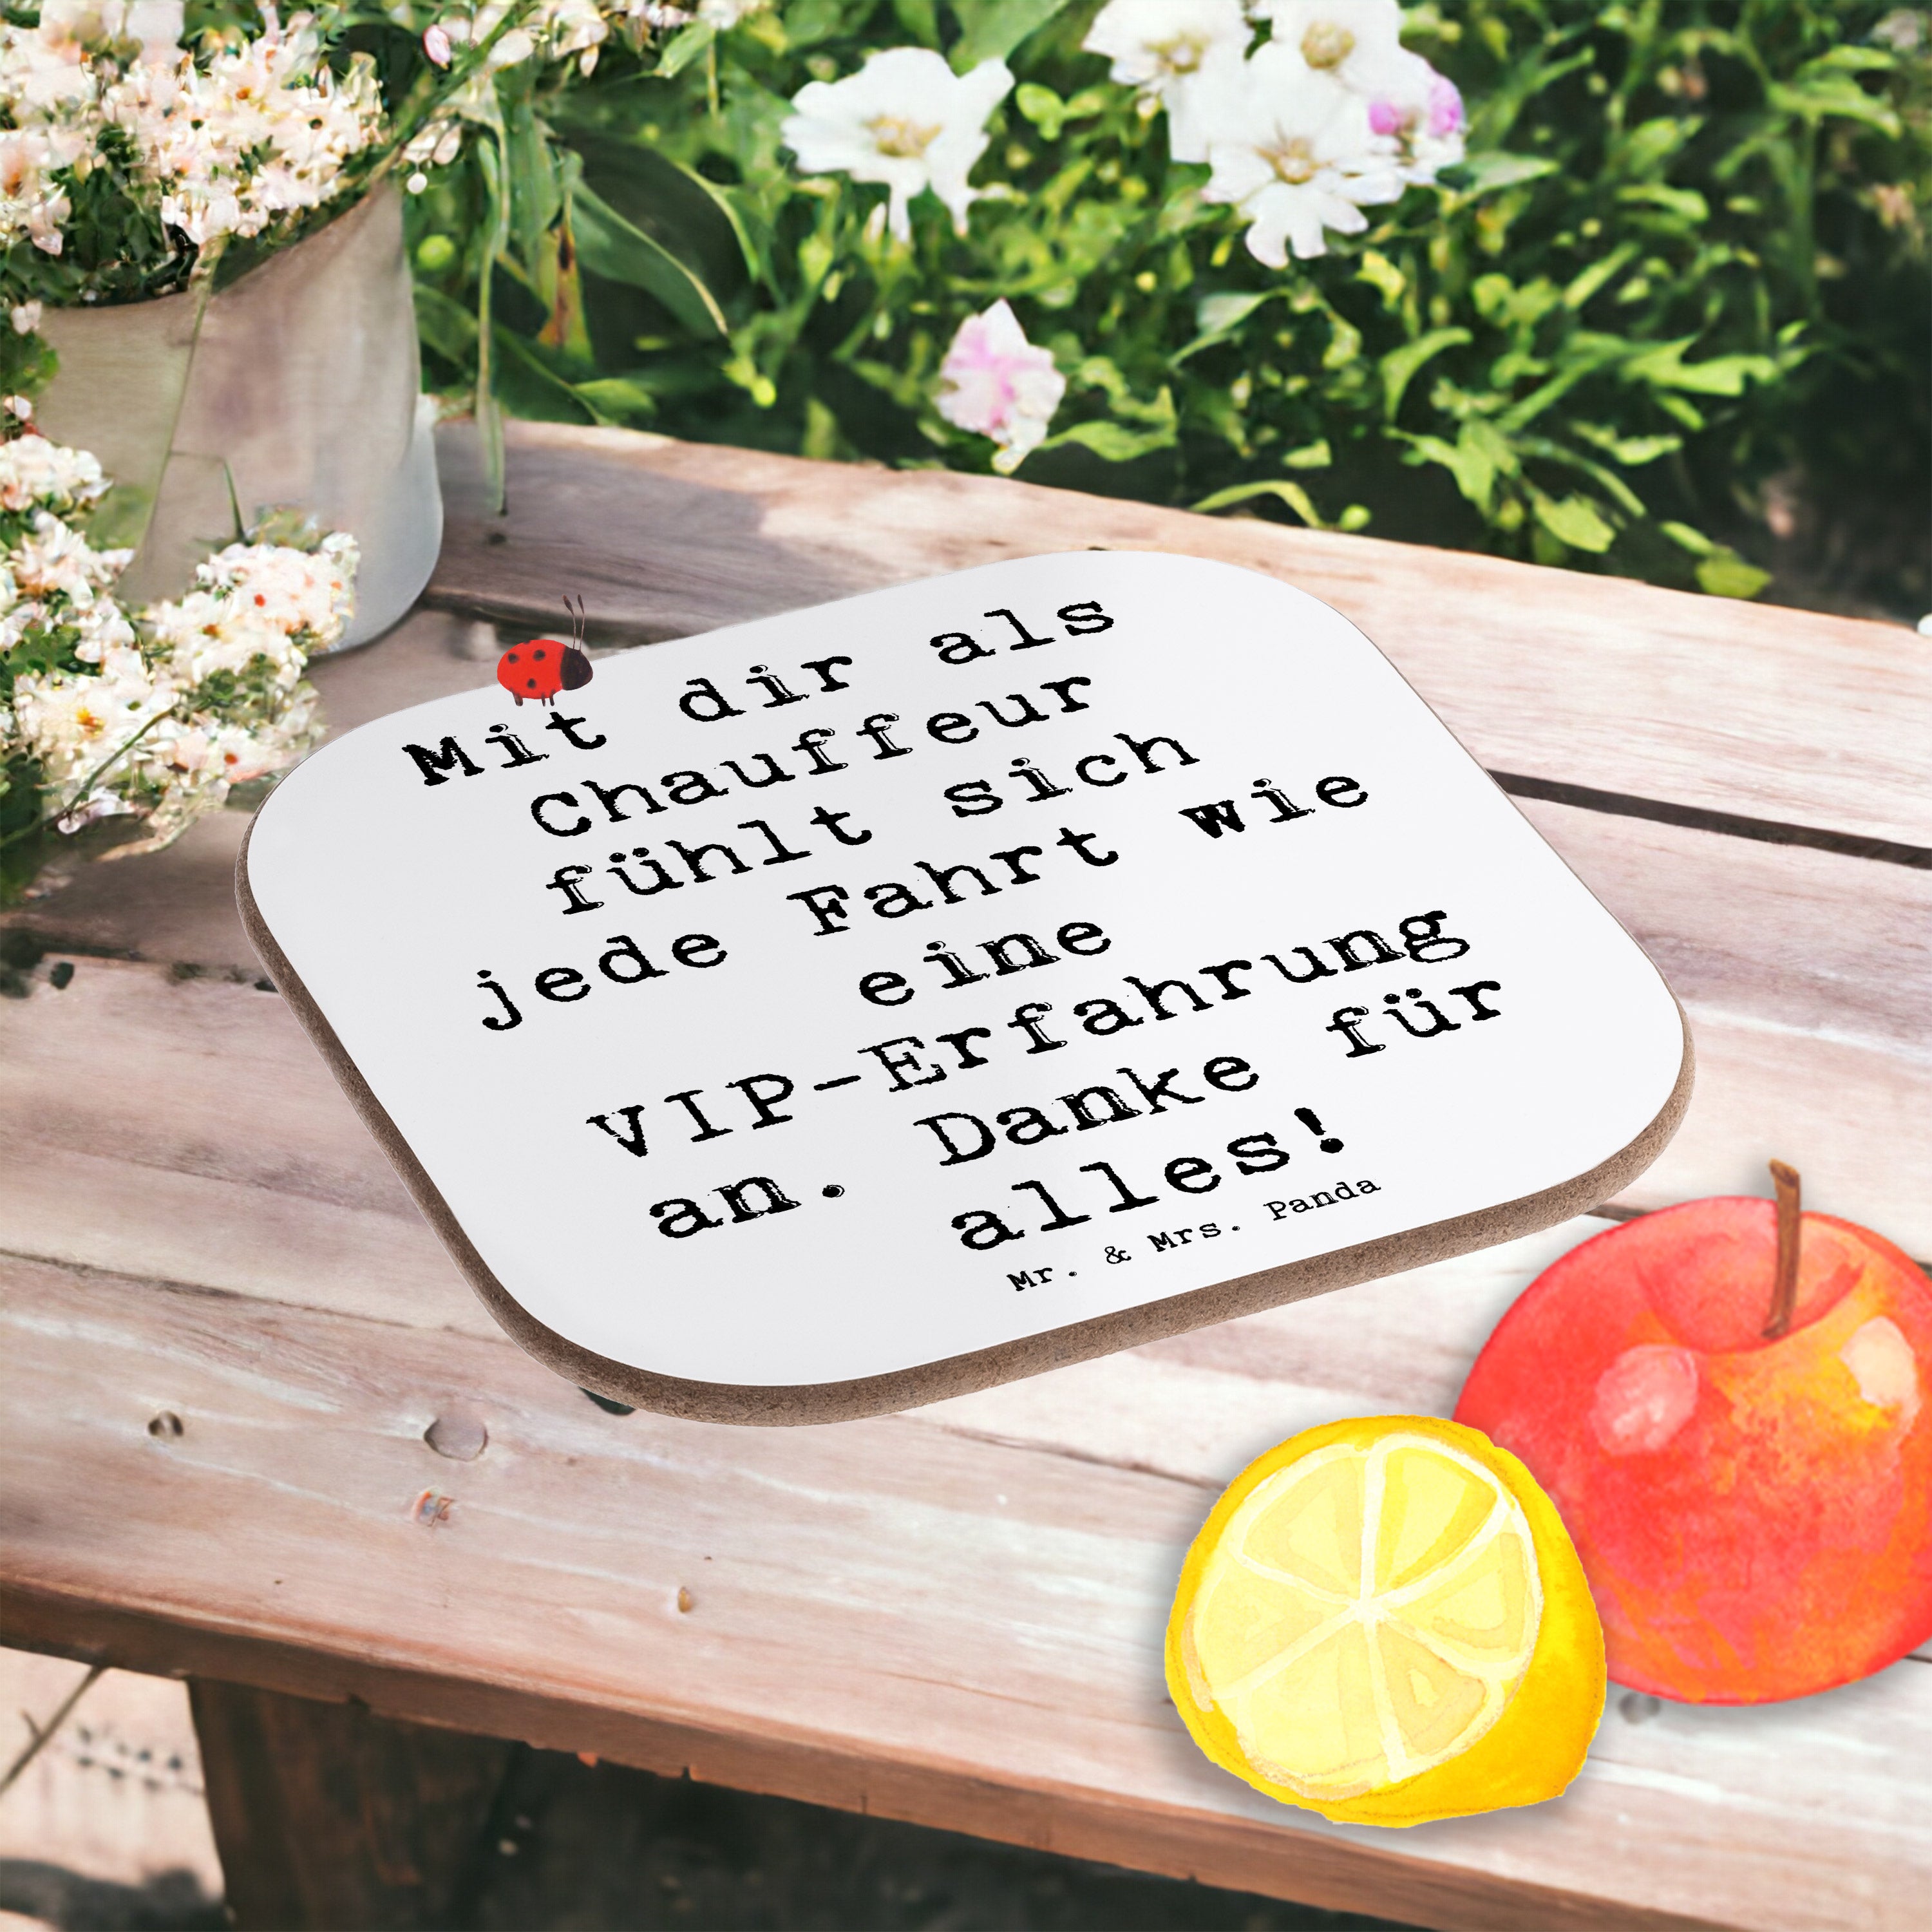 Mit dir als
Chauffeur
fühlt sich
jede Fahrt wie
eine
VIP-Erfahrung
an. Danke für
alles!
Mr. & Mrs. Panda